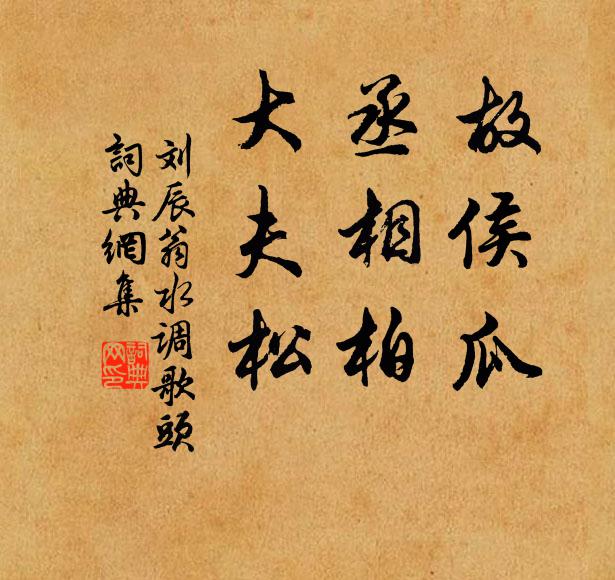 故侯瓜
丞相柏
大夫松
刘辰翁水调歌頭
詞典網集
詞典
网印